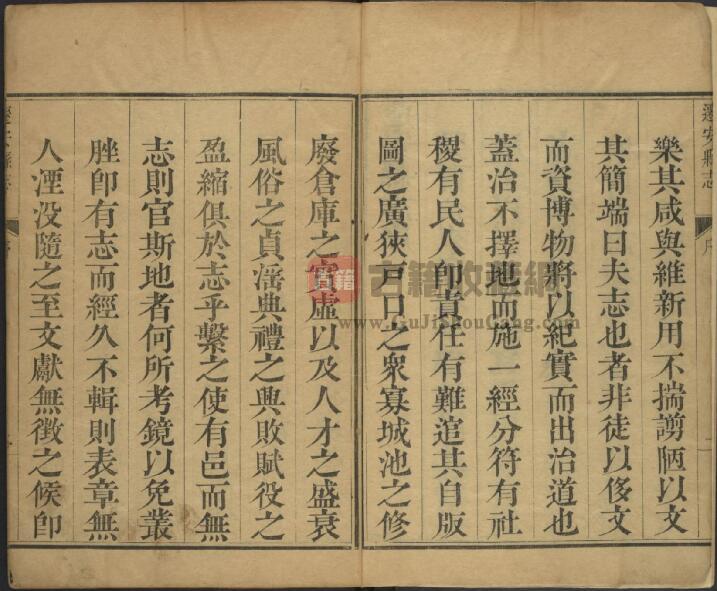 遷安縣志
序
樂其咸與維新用不揣謭陋以文
其簡端曰夫志也者非徒以侈文
而資博物將以紀實而出治道也
蓋治不擇地而施一經分符有社
稷有民人卽責任有難逭其自版
圖之廣狹戸口之衆寡城池之修
廢倉庫之實虛以及人才之盛衰
風俗之貞滛典禮之興敗賦役之
盈縮俱於志乎繫之使有邑而無
志則官斯地者何所考鏡以免叢
脞卽有志而經久不輯則表章無
人湮没隨之至文獻無徵之候卽
遷安縣志
序
古籍收藏網
www.GuJiShouCang.com
古籍